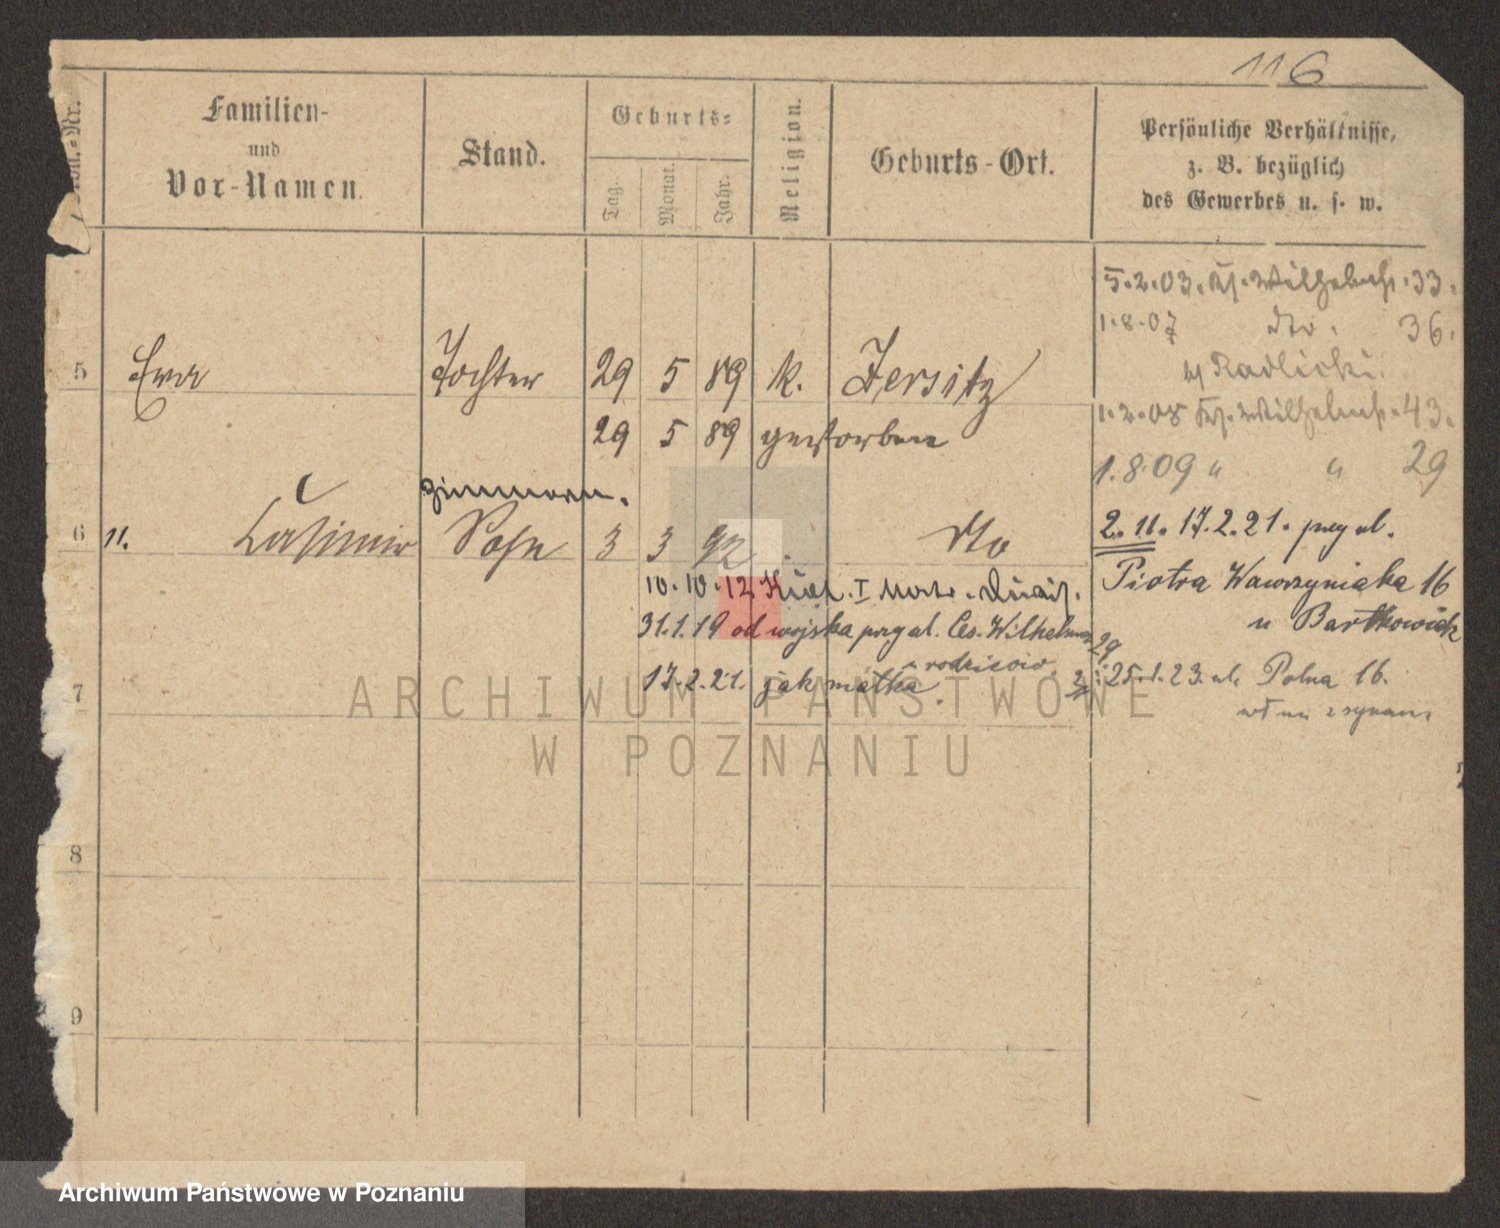 116
Familien-
und
Vor-Namen.
Stand.
Geburts-
Tag.
Monat.
Jahr.
Religion.
Geburts-Ort.
Persönliche Verhältnisse,
z. B. bezüglich
des Gewerbes u. s. w.
5.2.03. Ks. Wilhelmstr. 33.
1.8.07 dto. 36.
b/ Radlicki.
5 Eva Tochter 29 5 89 k. Jersitz
29 5 89 gestorben
1.2.08 Ks. Wilhelmstr. 43.
1.8.09 " " 29
6 11. Casimir Sohn 3 3 92 dto
2. 11. 17.2.21. przy ul.
Piotra Wawrzyniaka 16
u Bartkowiak
10.10.12
31.1.19 od wojska przy ul. Ces. Wilhelma 29
17.2.21. jak matka
25.1.23. ul. Polna 16.
z synami
7
8
9
ARCHIWUM PAŃSTWOWE
W POZNANIU
Archiwum Państwowe w Poznaniu